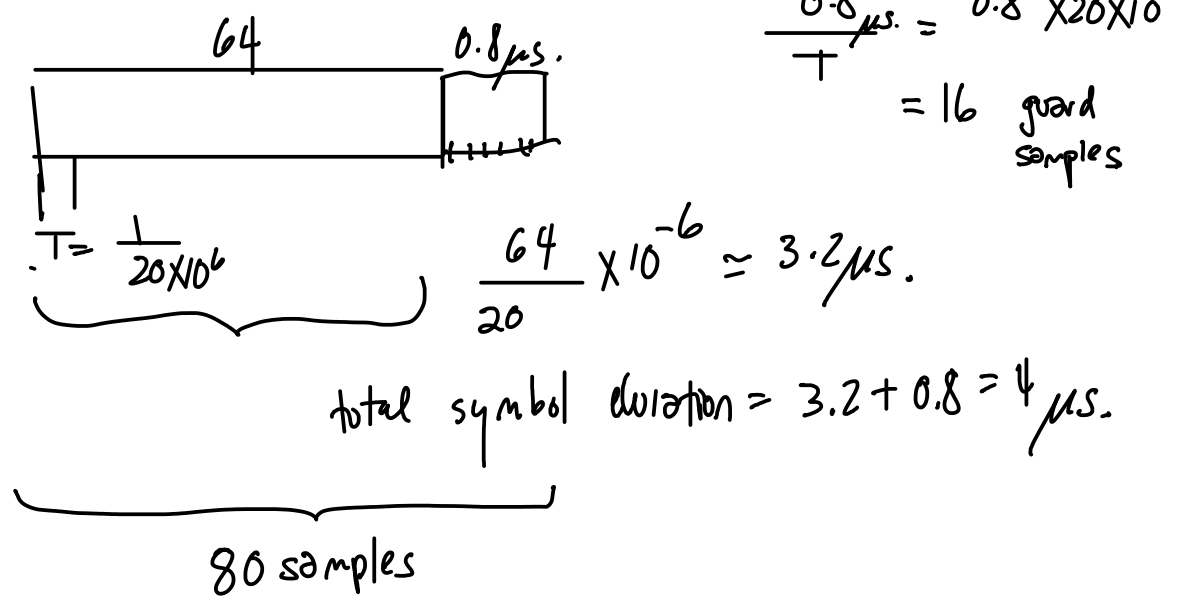 64 0.8 μs.
0.8 μs. / T = 0.8 × 20 × 10
= 16 guard
samples
T = 1 / 20×10^6
64 / 20 × 10^-6 ≃ 3.2 μs.
total symbol duration = 3.2 + 0.8 = 4 μs.
80 samples